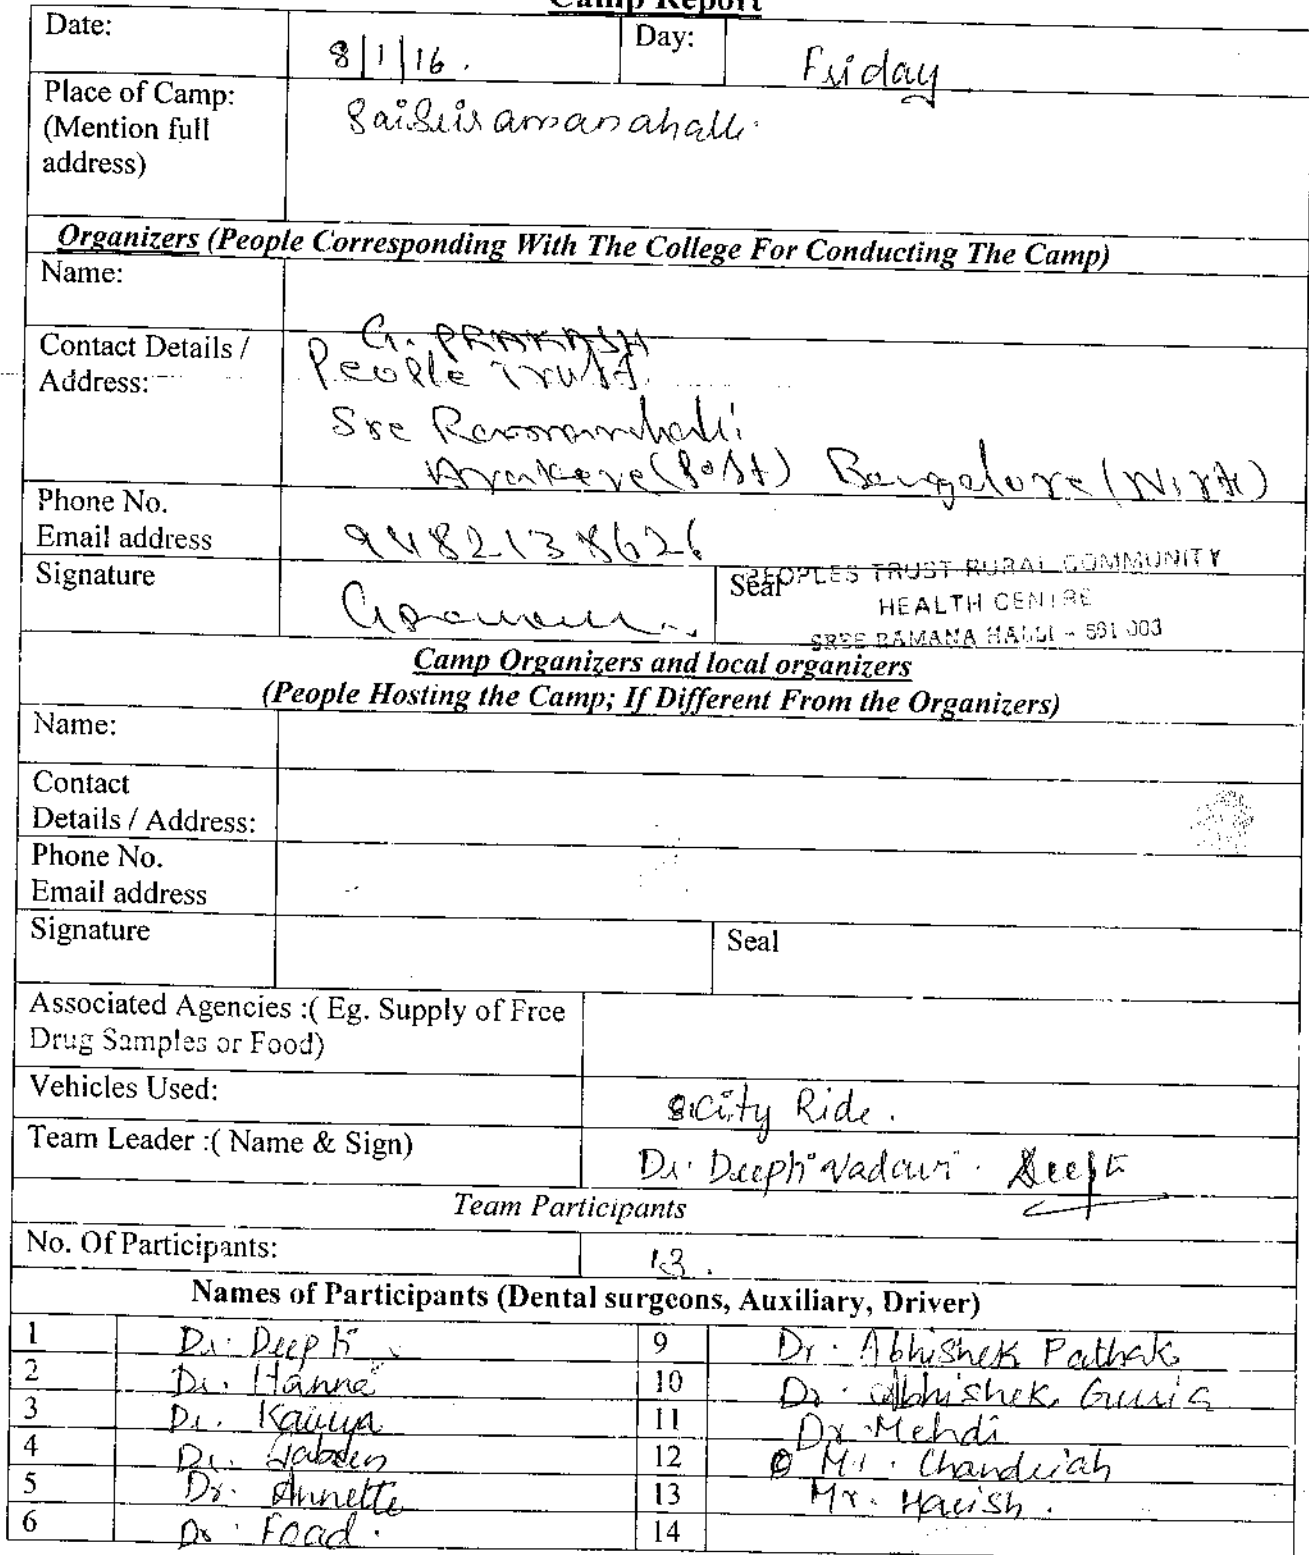 Camp Report
Date: 8/1/16. Day: Friday
Place of Camp:
(Mention full
address)
Organizers (People Corresponding With The College For Conducting The Camp)
Name: G. PRAKASH
Contact Details /
Address:
People Trust
Sre Ramanahalli
Arakere (Post) Bangalore
Phone No.
Email address
9482138626
Signature Seal
PEOPLES TRUST RURAL COMMUNITY
HEALTH CENTRE
SREE RAMANA HALLI - 561 003
Camp Organizers and local organizers
(People Hosting the Camp; If Different From the Organizers)
Name:
Contact
Details / Address:
Phone No.
Email address
Signature Seal
Associated Agencies :( Eg. Supply of Free
Drug Samples or Food)
Vehicles Used: City Ride.
Team Leader :( Name & Sign) Dr. Deepti Vadavi. Deepti
Team Participants
No. Of Participants: 13.
Names of Participants (Dental surgeons, Auxiliary, Driver)
1 Dr. Deepti 9 Dr. Abhishek Pathak
2 Dr. Hanna 10 Dr. Abhishek Guria
3 Dr. Kavya 11 Dr. Mehdi
4 Dr. 12 Mr. Chandriah
5 Dr. Annette 13 Mr. Harish.
6 Dr. Foad. 14